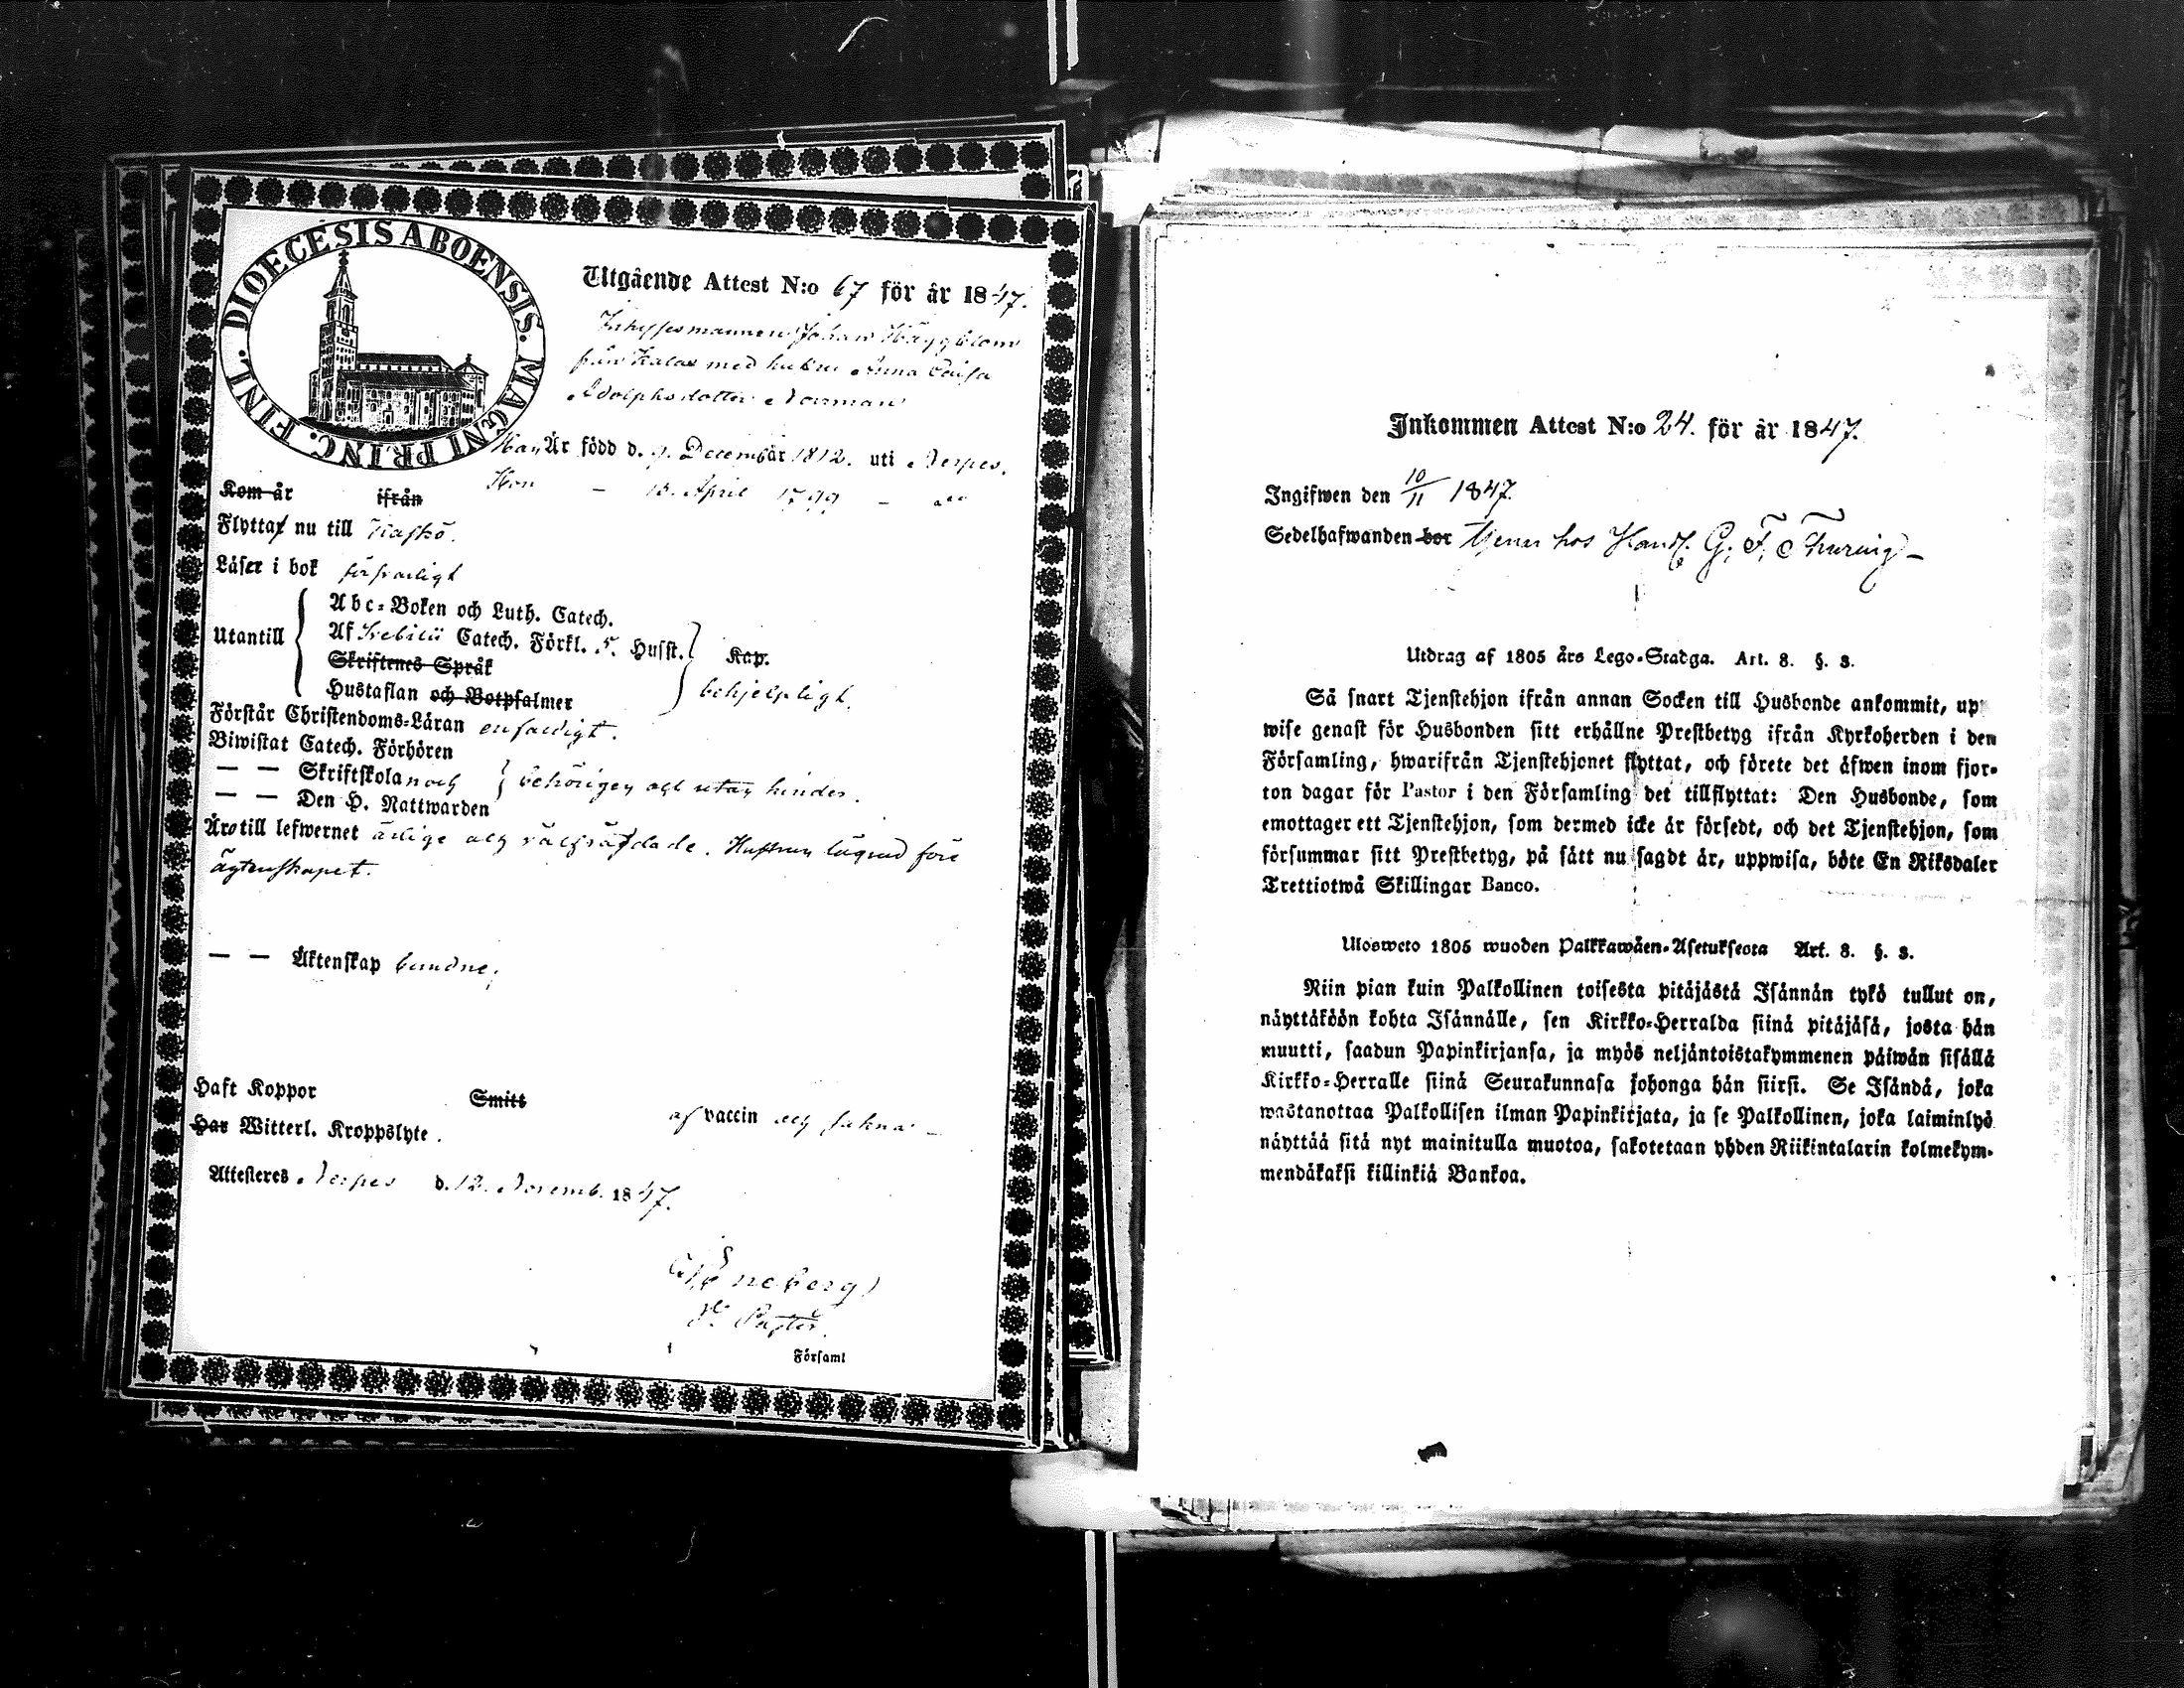 DIOECESIS ABOENSIS. MAGNI PRINC. FINL.
Utgående Attest N:o 67 för år 1847.
Inhysesmannen Johan Häggblom
från Kalax med hustru Anna Caisa
Adolphsdotter Norrman
Han Är född d. 9. December 1812. uti Nerpes.
Hon – 18. April 1799 –
Kom år ifrån
Flytta nu till Kaskö.
Läser i bok försvarligt
Utantill
Abc-Boken och Luth. Catech.
Af Svebilii Catech. Förkl. 5. Husst. Kap.
Skriftenes Språk
Hustaflan och Botpsalmer behjelpligt.
Förstår Christendoms-Läran enfaldigt.
Biwistat Catech. Förhören
— — Skriftskola och behörigen och utan hinder.
— — Den H. Nattwarden
Äro till lefwernet ärlige och välfrejdade. Hustrun lägrad före
ägtenskapet.
— — Äktenskap bundne.
Haft Koppor Smitt af vaccin och sakna –
Har Witterl. Kroppslyte.
Attesteres Nerpes d. 12. Novemb. 1847.
Pastor.
Församl
Inkommen Attest N:o 24. för år 1847.
Ingifwen den 10/11 1847.
Sedelhafwanden bor tjenar hos Handl. G. F. Thuring –
Utdrag af 1805 års Lego-Stadga. Art. 8. §. 3.
Så snart Tjenstehjon ifrån annan Socken till Husbonde ankommit, up
wise genast för Husbonden sitt erhållne Prestbetyg ifrån Kyrkoherden i den
Församling, hwarifrån Tjenstehjonet flyttat, och förete det äfwen inom fjor-
ton dagar för Pastor i den Församling det tillflyttat: Den Husbonde, som
emottager ett Tjenstehjon, som dermed icke är försedt, och det Tjenstehjon, som
försummar sitt Prestbetyg, på sätt nu sagdt är, uppwisa, böte En Riksdaler
Trettiotwå Skillingar Banco.
Ulosweto 1805 wuoden Palkkawäen-Asetuksesta Art. 8. §. 3.
Niin pian kuin Palkollinen toisesta pitäjästä Isännän tykö tullut on,
näyttäköön kohta Isännälle, sen Kirkko-Herralda siinä pitäjäsä, josta hän
muutti, saadun Papinkirjansa, ja myös neljäntoistakymmenen päiwän sisällä
Kirkko-Herralle siinä Seurakunnasa johonga hän siirsi. Se Isändä, joka
wastanottaa Palkollisen ilman Papinkirjata, ja se Palkollinen, joka laiminlyö
näyttää sitä nyt mainitulla muotoa, sakotetaan yhden Riikintalarin kolmekym-
mendäkaksi killinkiä Bankoa.